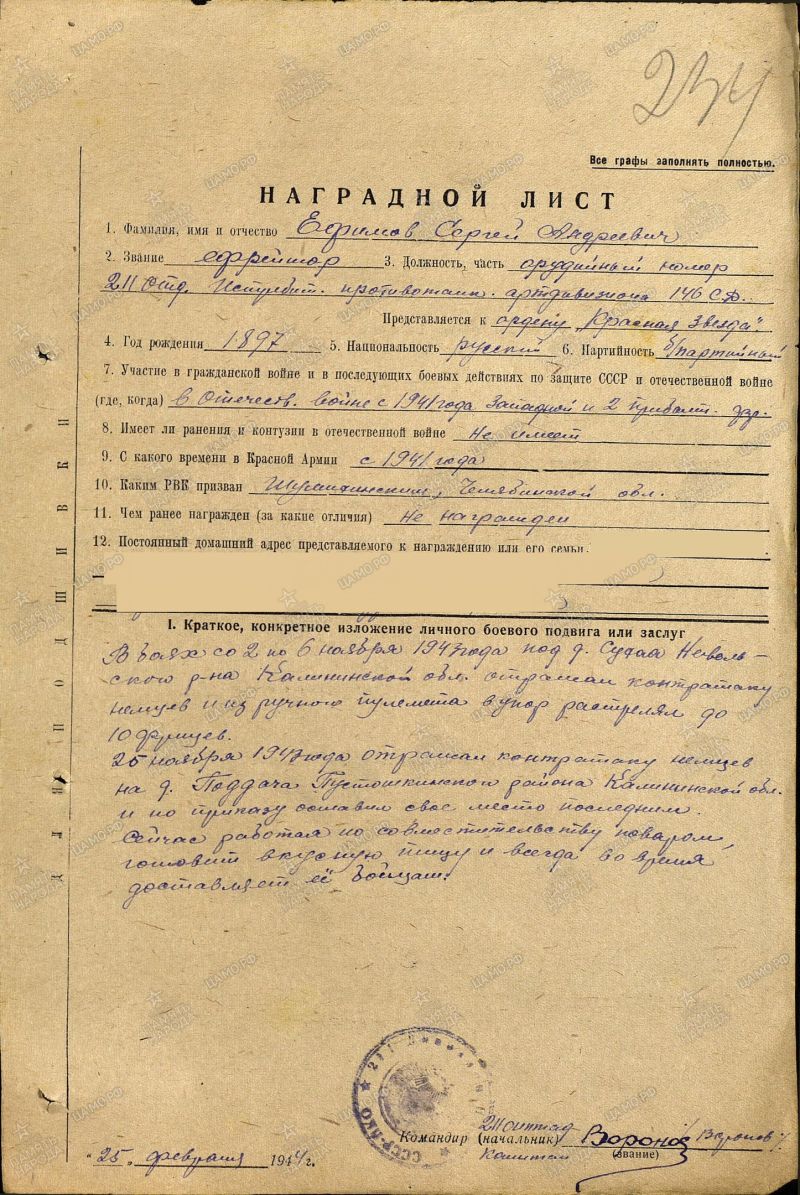 234
Все графы заполнять полностью.
НАГРАДНОЙ ЛИСТ
1. Фамилия, имя и отчество Ефимов Сергей Андреевич
2. Звание ефрейтор 3. Должность, часть орудийный номер
211 Отд. Истребит. противотанк. артдивизиона 146 С.Д.
Представляется к ордену „Красная Звезда".
4. Год рождения 1897 5. Национальность русский 6. Партийность б/партийный
7. Участие в гражданской войне и в последующих боевых действиях по защите СССР и отечественной войне
(где, когда) в Отечеств. войне с 1941 года Западной и 2 Прибалт. фр.
8. Имеет ли ранения и контузии в отечественной войне Не имеет
9. С какого времени в Красной Армии с 1941 года
10. Каким РВК призван Шумихинским, Челябинской обл.
11. Чем ранее награжден (за какие отличия) не награжден
12. Постоянный домашний адрес представляемого к награждению или его семьи.
I. Краткое, конкретное изложение личного боевого подвига или заслуг
В боях со 2 по 6 ноября 1943 года под д. Невель-
ского р-на Калининской обл. отражал контратаку
немцев и из ручного пулемета в упор растрелял до
10 фрицев.
25 ноября 1943 года отражал контратаку немцев
на д. Поддача Пустошкинского района Калининской обл.
и по приказу оставил свое место последним.
Сейчас работая по совместительству поваром,
готовит вкусную пищу и всегда во время
доставляет её бойцам.
Командир (начальник) 211 оиптад Воронов /Воронов/
капитан (звание)
"25" февраля 1944 г.
ДЛЯ ПОДШИВКИ
СССР-НКО
ПАМЯТЬ НАРОДА
ЦАМО.РФ